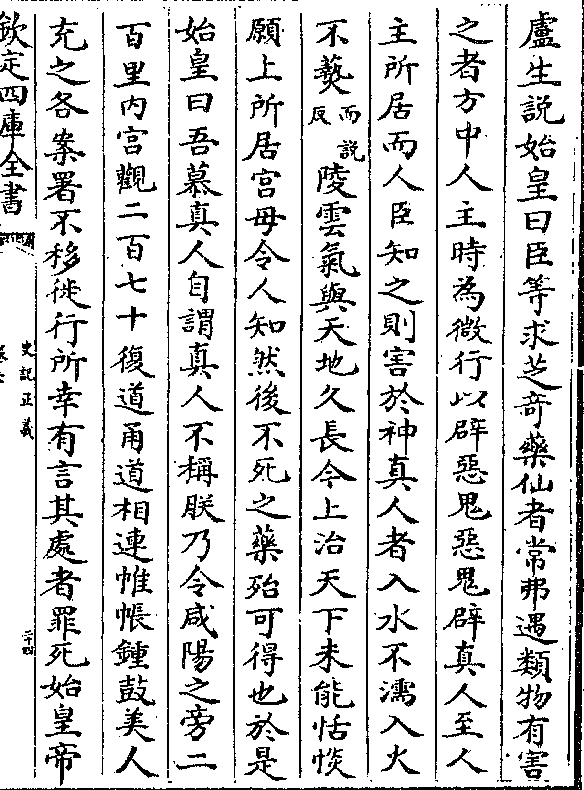 盧生説始皇曰臣等求芝奇藥仙者常弗遇類物有害
之者方中人主時為微行以辟惡鬼惡鬼辟真人至人
主所居而人臣知之則害於神真人者入水不濡入火
不爇而説反陵雲氣與天地久長今上治天下未能恬惔
願上所居宫毋令人知然後不死之藥殆可得也於是
始皇曰吾慕真人自謂真人不稱朕乃令咸陽之旁二
百里内宫觀二百七十復道甬道相連帷帳鍾鼓美人
充之各案署不移徙行所幸有言其處者罪死始皇帝
欽定四庫全書
史記正義
二十四